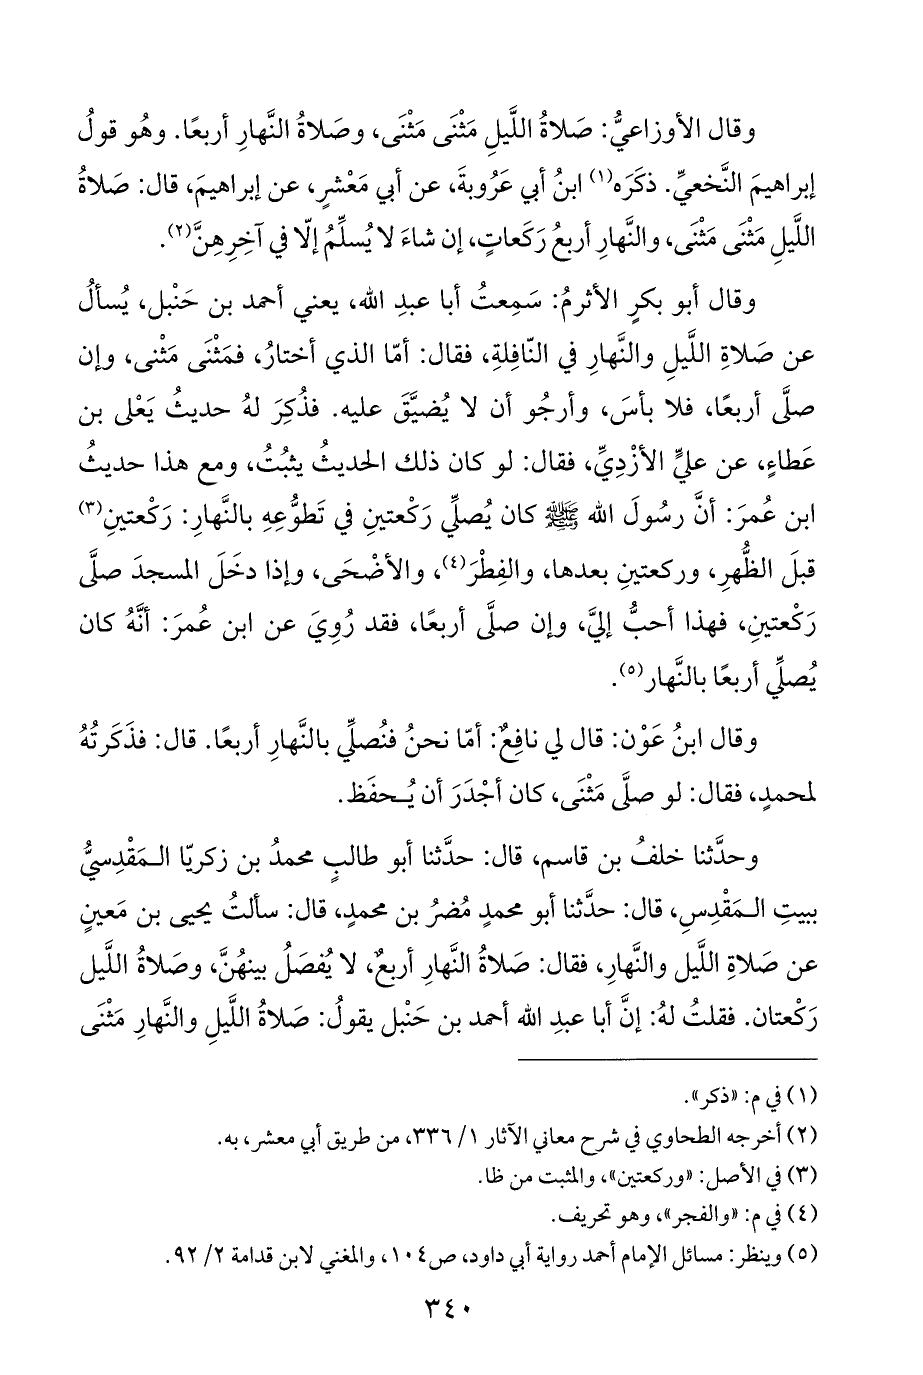 وقال الأوزاعيُّ: صَلاةُ اللَّيلِ مَثْنَى مَثْنَى، وصَلاةُ النَّهارِ أربعًا. وهُو قولُ
إبراهيمَ النَّخعيِّ. ذكَرَه(١) ابنُ أبي عَرُوبةَ، عن أبي مَعْشرٍ، عن إبراهيمَ، قال: صَلاةُ
اللَّيلِ مَثْنَى مَثْنَى، والنَّهارِ أربعُ رَكَعاتٍ، إن شاءَ لا يُسلِّمُ إلّا في آخِرِهِنَّ(٢).
وقال أبو بكرٍ الأثرمُ: سَمِعتُ أبا عبدِ الله، يعني أحمد بن حَنْبل، يُسألُ
عن صَلاةِ اللَّيلِ والنَّهارِ في النّافِلةِ، فقال: أمّا الذي أختارُ، فمَثْنَى مَثْنى، وإن
صلَّى أربعًا، فلا بأسَ، وأرجُو أن لا يُضيَّقَ عليه. فذُكِرَ لهُ حديثُ يَعْلى بن
عَطاءٍ، عن عليٍّ الأزْدِيِّ، فقال: لو كان ذلك الحديثُ يثبُتُ، ومع هذا حديثُ
ابن عُمرَ: أنَّ رسُولَ الله ﷺ كان يُصلِّي رَكْعتينِ في تَطوُّعِهِ بالنَّهارِ: رَكْعتينِ(٣)
قبلَ الظُّهرِ، وركعتينِ بعدها، والفِطْرَ(٤)، والأضْحَى، وإذا دخَلَ المسجدَ صلَّى
رَكْعتينِ، فهذا أحبُّ إليَّ، وإن صلَّى أربعًا، فقد رُوِيَ عن ابن عُمرَ: أنَّهُ كان
يُصلِّي أربعًا بالنَّهار(٥).
وقال ابنُ عَوْن: قال لي نافِعٌ: أمّا نحنُ فنُصلِّي بالنَّهارِ أربعًا. قال: فذَكَرتُهُ
لمحمدٍ، فقال: لو صلَّى مَثْنَى، كان أجْدَرَ أن يُـحفَظ.
وحدَّثنا خلفُ بن قاسم، قال: حدَّثنا أبو طالبٍ محمدُ بن زكريّا الـمَقْدِسيُّ
ببيتِ الـمَقْدِسِ، قال: حدَّثنا أبو محمدٍ مُضرُ بن محمدٍ، قال: سألتُ يحيى بن مَعينٍ
عن صَلاةِ اللَّيل والنَّهارِ، فقال: صَلاةُ النَّهارِ أربعٌ، لا يُفصَلُ بينهُنَّ، وصَلاةُ اللَّيل
رَكْعتان. فقلتُ لهُ: إنَّ أبا عبدِ الله أحمد بن حَنْبل يقولُ: صَلاةُ اللَّيلِ والنَّهارِ مَثْنَى
(١) في م: «ذكر».
(٢) أخرجه الطحاوي في شرح معاني الآثار ١/ ٣٣٦، من طريق أبي معشر، به.
(٣) في الأصل: «وركعتين»، والمثبت من ظا.
(٤) في م: «والفجر»، وهو تحريف.
(٥) وينظر: مسائل الإمام أحمد رواية أبي داود، ص١٠٤، والمغني لابن قدامة ٢/ ٩٢.
٣٤٠